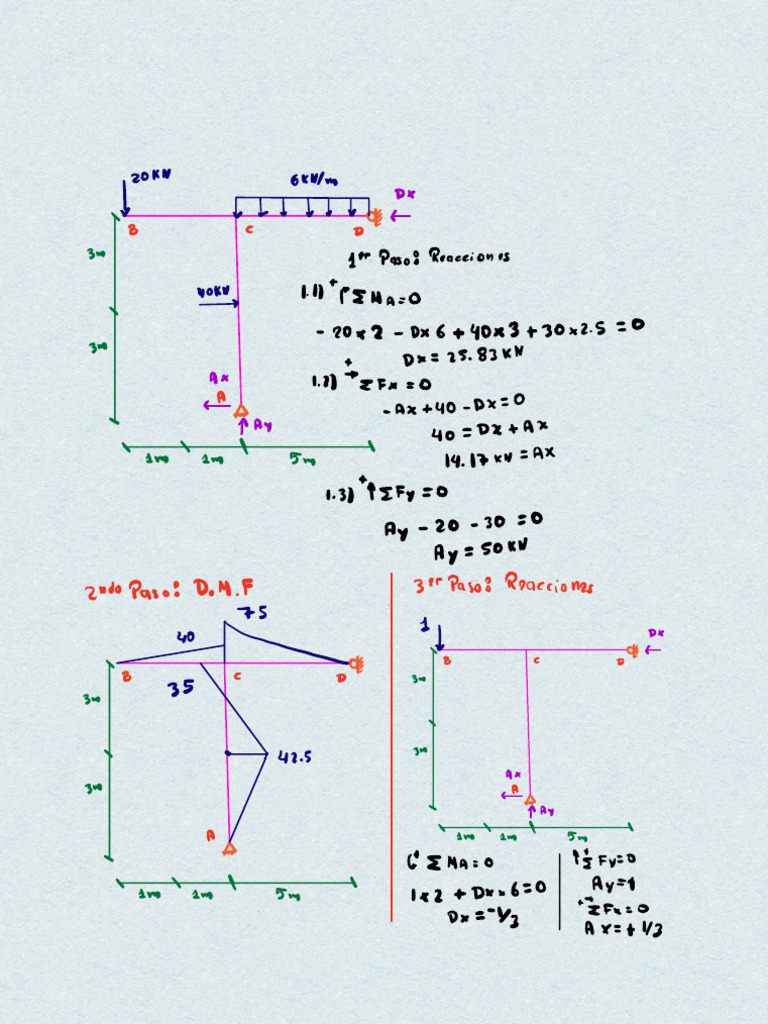 20KN
6KN/m
Dx
B
C
D
3m
40KN
3m
Ax
A
Ay
1m
1m
5m
1er Paso: Reacciones
1.1) + ΣMA=0
- 20x2 - Dx 6 + 40x3 + 30x2.5 = 0
Dx = 25.83 KN
1.2) + → ΣFx = 0
-Ax + 40 - Dx = 0
40 = Dx + Ax
14.17 KN = Ax
1.3) + ↑ΣFy = 0
Ay - 20 - 30 = 0
Ay = 50 KN
2ndo Paso: D.M.F
75
40
B
C
D
35
3m
42.5
3m
A
1m
1m
5m
3er Paso: Reacciones
1
Dx
B
C
D
3m
3m
Ax
A
Ay
1m
1m
5m
+ ΣMA=0
1x2 + Dx x 6 = 0
Dx = -1/3
↑+ ΣFy=0
Ay=1
+→ ΣFx=0
Ax=+1/3